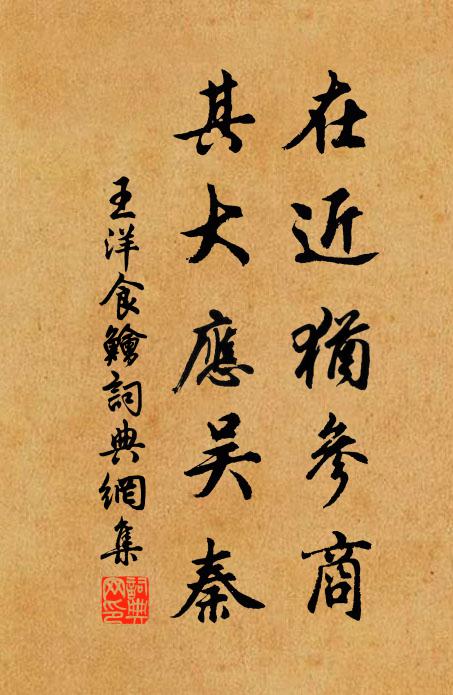 在近猶參商
其大應吴秦
王洋食鱠詞典網集
詞典网印